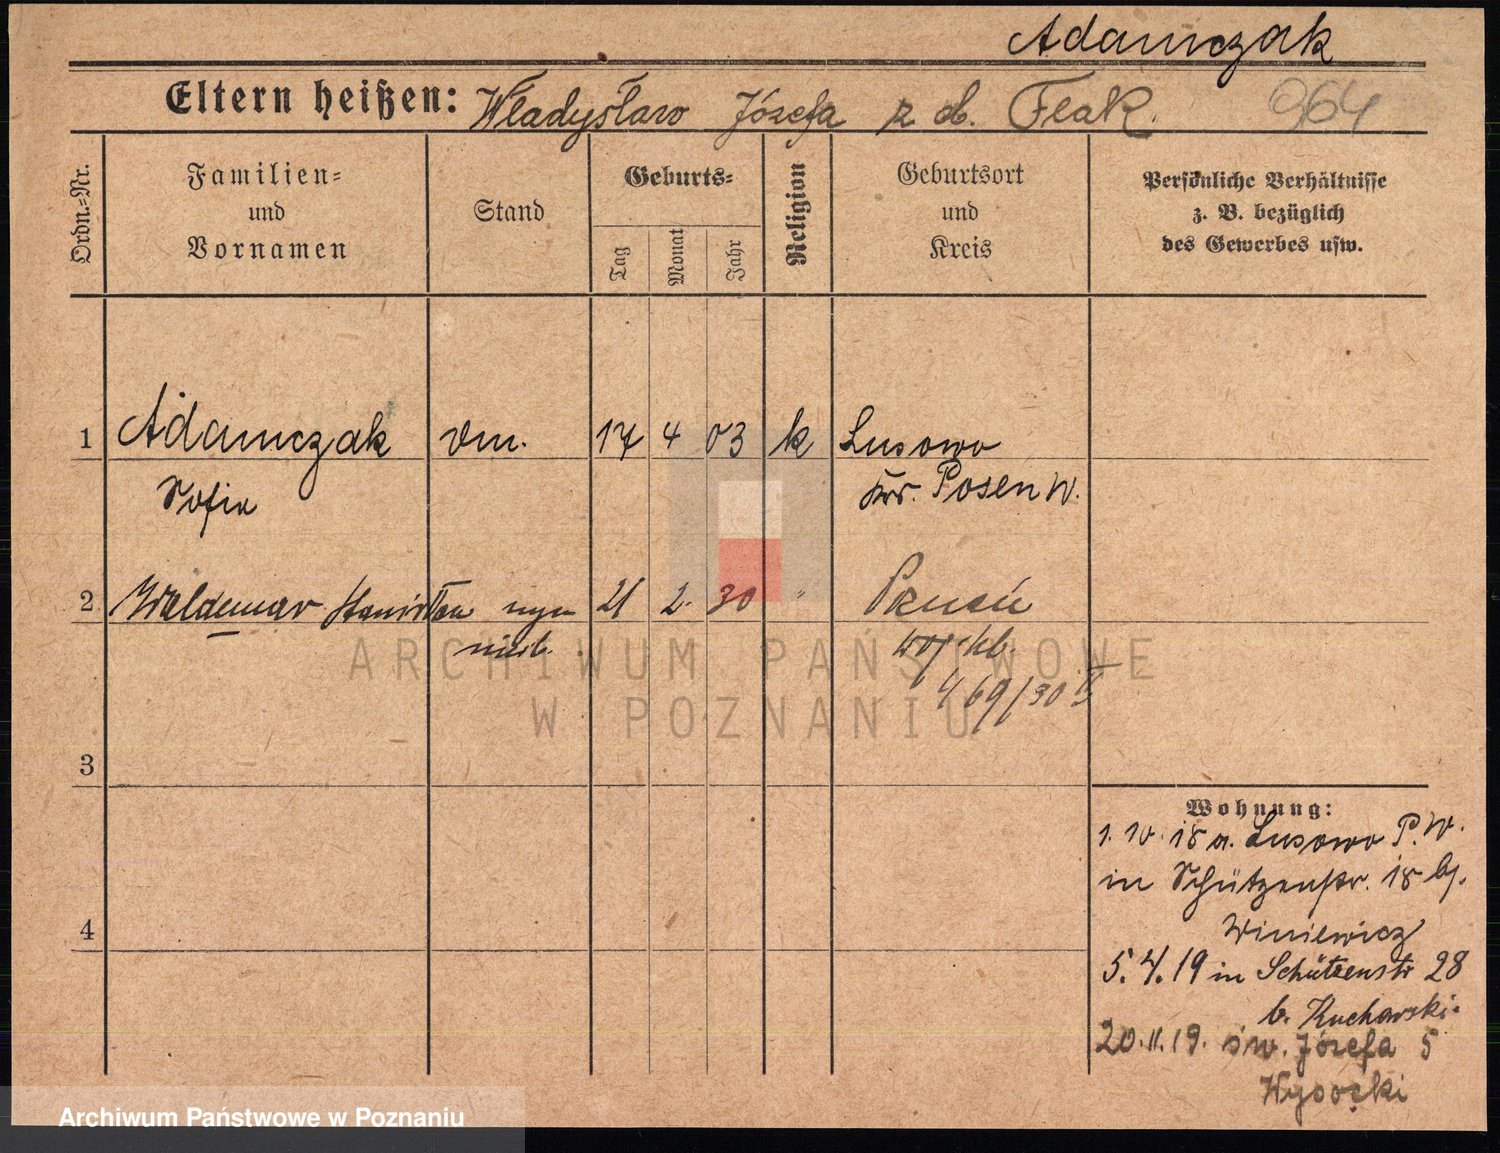 Adamczak
Eltern heißen: Władysław Józefa z d. Flak. 964
Ordn.=Nr.
Familien=
und
Vornamen
Stand
Geburts=
Tag
Monat
Jahr
Religion
Geburtsort
und
Kreis
Persönliche Verhältnisse
z. B. bezüglich
des Gewerbes usw.
1 Adamczak 17 4 03 k Lusowo
Sofia Krs. Posen W.
2 Waldemar 21 2. 30 "
niesl.
469/30
3
4
Wohnung:
1. 10. 18 a. Lusowo P. W.
in Schützenstr. 18 bj.
Winiewicz
5. 4. 19 in Schützenstr 28
b. Kucharski.
20. 11. 19. św. Józefa 5
Wysocki
ARCHIWUM PAŃSTWOWE
W POZNANIU
Archiwum Państwowe w Poznaniu